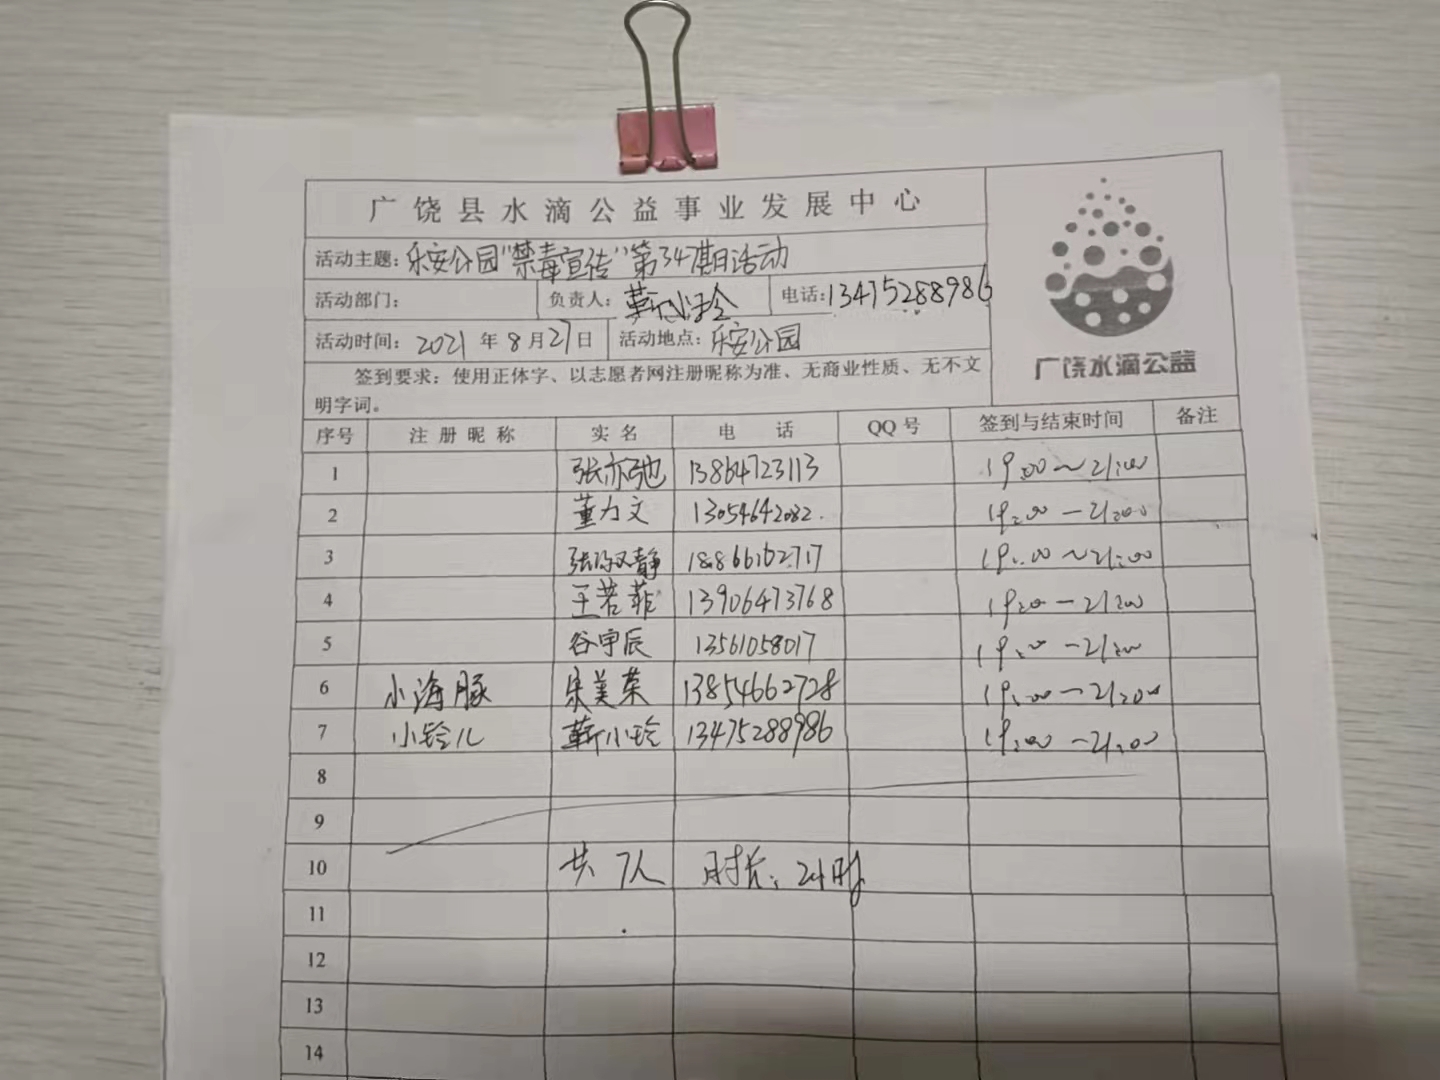 广饶县水滴公益事业发展中心
活动主题：乐安公园"禁毒宣传"第34期活动
活动部门： 负责人：靳小玲 电话：13475288986
活动时间：2021年8月27日 活动地点：乐安公园
签到要求：使用正体字、以志愿者网注册昵称为准、无商业性质、无不文
明字词。
广饶水滴公益
序号 注册昵称 实名 电话 QQ号 签到与结束时间 备注
1 张亦弛 13864723113 19:00～21:00
2 董力文 13054642082 19:00—21:00
3 张 静 18866162717 19:00～21:00
4 王若菲 13906473768 19:00—21:00
5 谷宇辰 13561058017 19:00—21:00
6 小海豚 宋美荣 13854662728 19:00—21:00
7 小铃儿 靳小玲 13475288986 19:00—21:00
8
9
10 共7人 时长：2小时
11
12
13
14